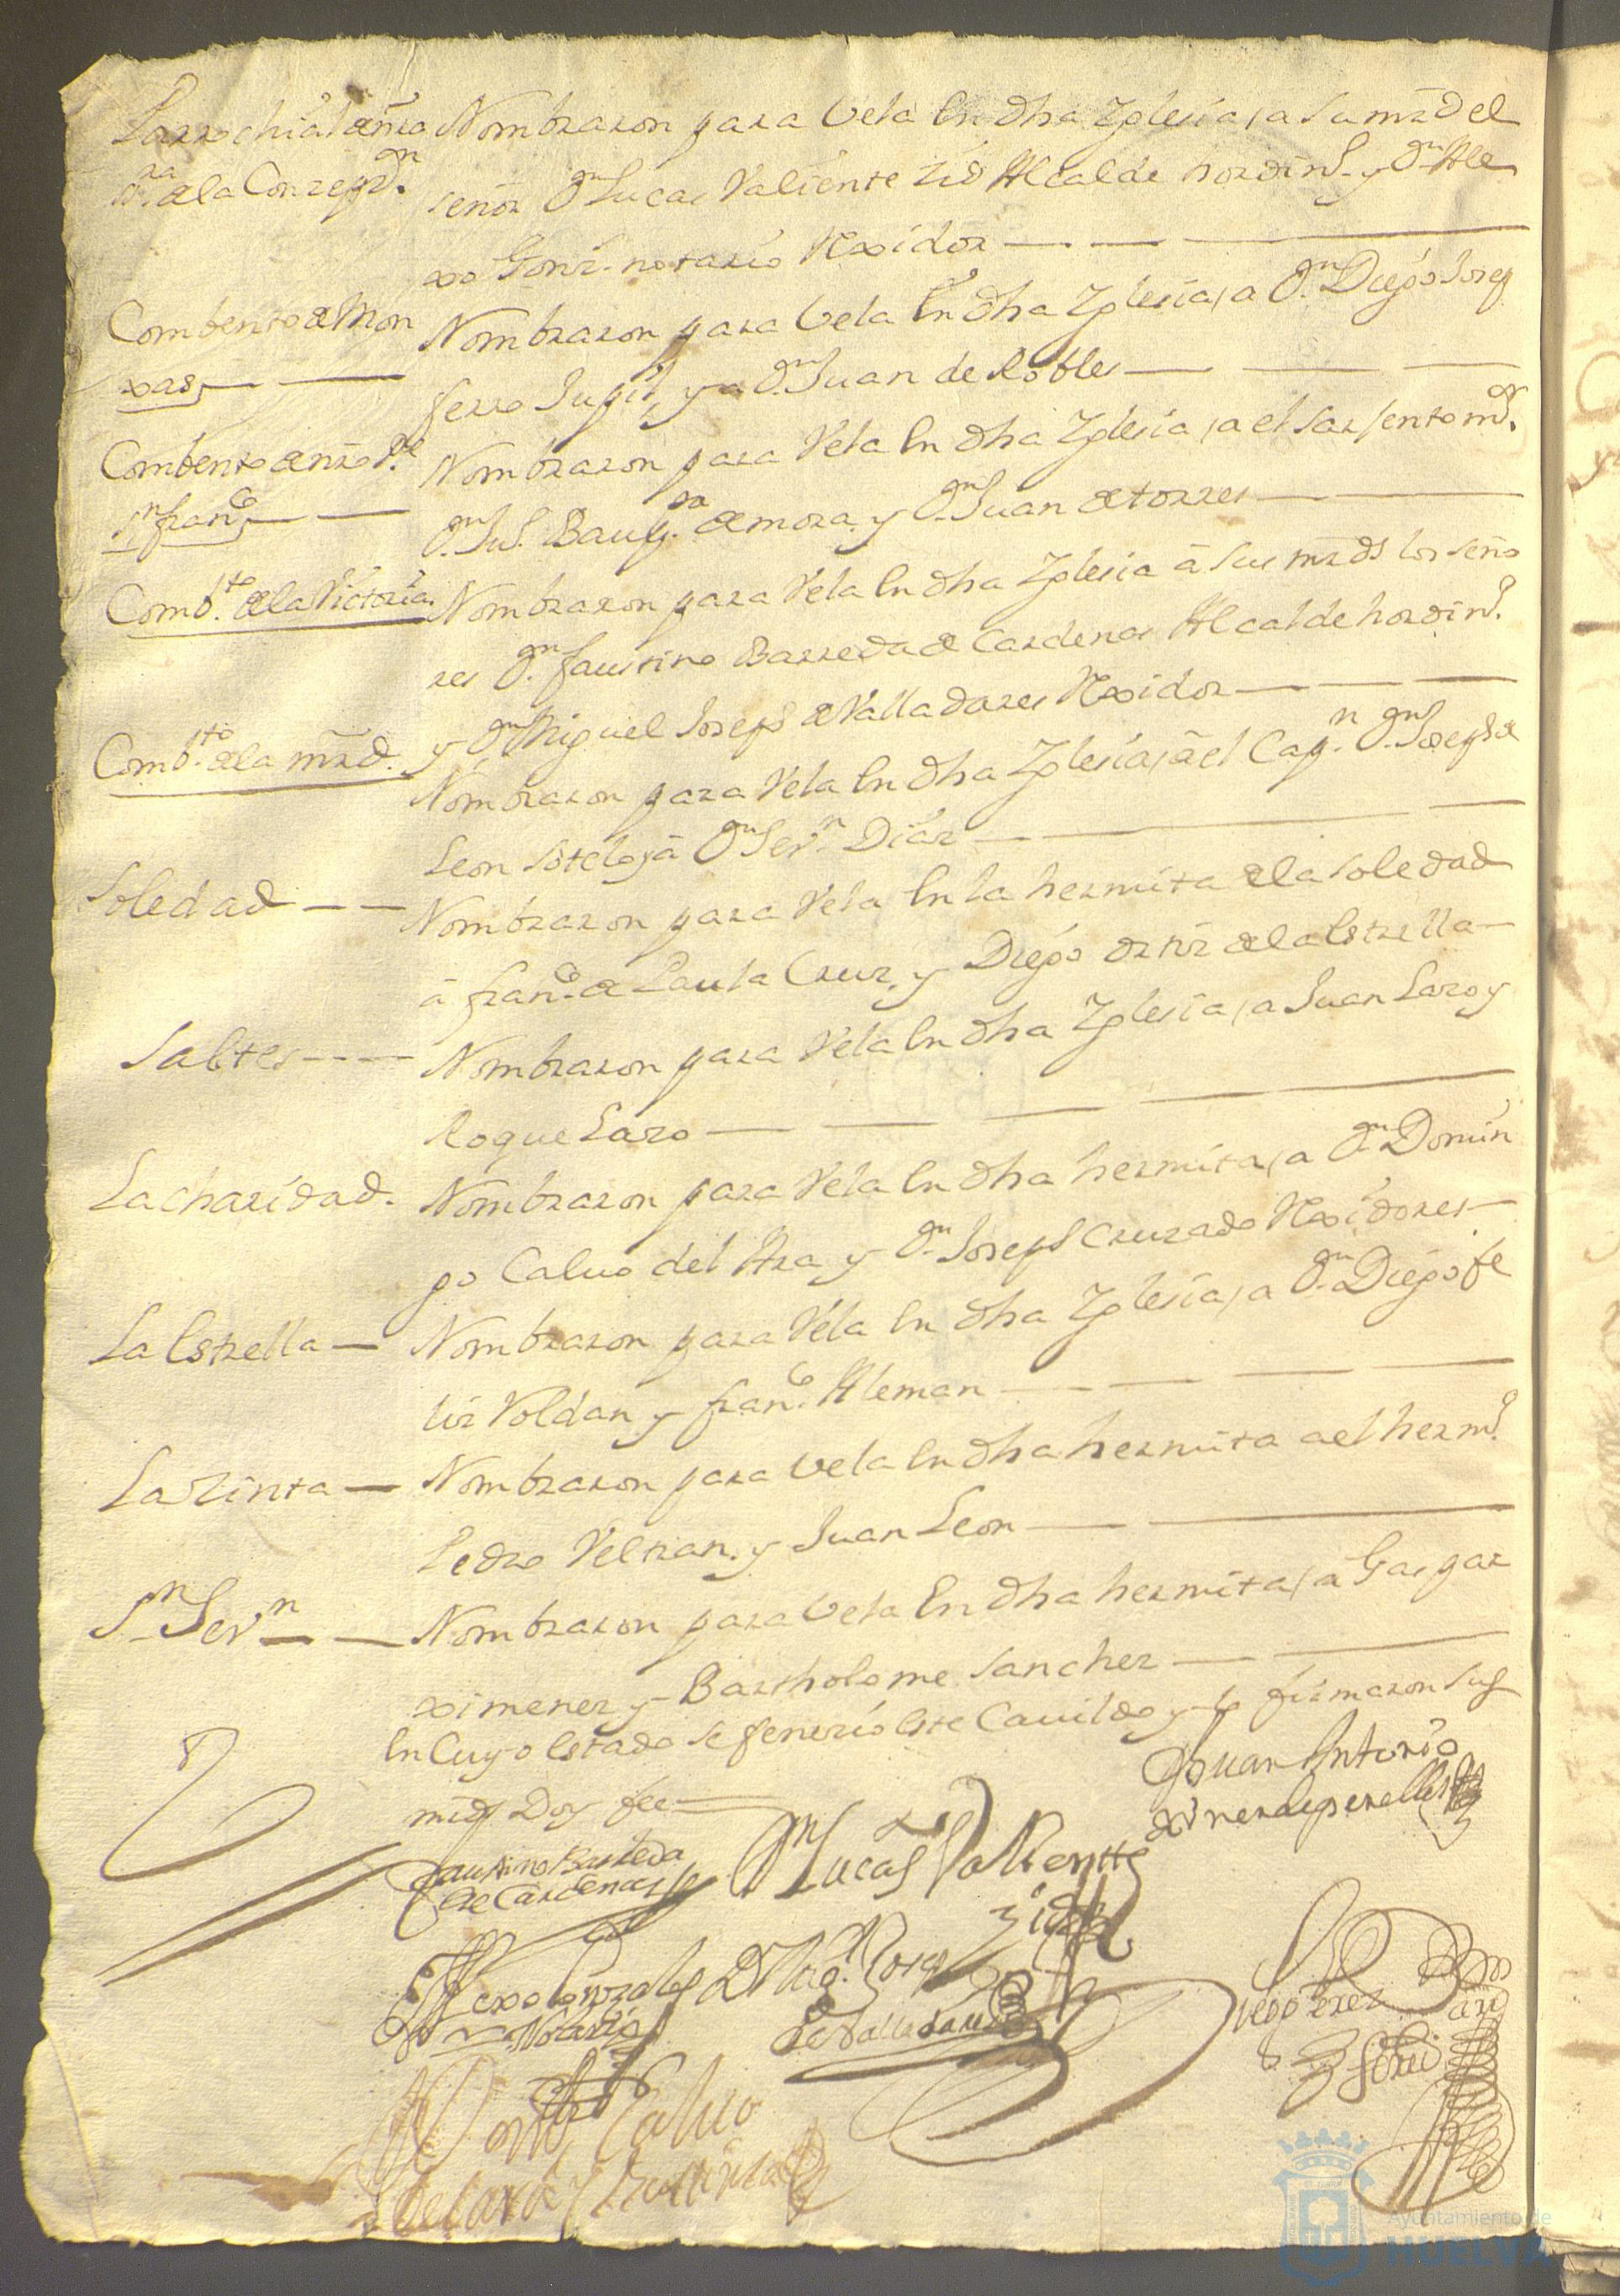 Parrochial de nra Nombraron para Vela En dha Yglesia, a su mrd el
sra de la Conzepn. señor Dn Lucas Valiente Zid Alcalde hordino. y Dn Ale
xo Gonz. notario Rexidor
Combento de Mon Nombraron para Vela En dha Yglesia, a Dn Diego Josep
xas ferro y a Dn Juan de Robles
Combento de nro Pe. Nombraron para Vela En dha Yglesia, a el Sarsento mor.
Sn franco Dn Ju. Baupta de mora y Dn Juan de torres
Combto. de la Victoria. Nombraron para Vela En dha Yglesia â sus mrds los seño
res Dn faustino Barreda de Cardenas Alcalde hordino.
y Dn Miguel Joseph de Valladares Rexidor
Combto. de la mrd. Nombraron para Vela En dha Yglesia, â el Capn. Dn Joseph de
Leon Sotelo, â Dn Sevn Diaz
Soledad Nombraron para Vela En la hermita de la Soledad
â franco. de Paula Cruz, y Diego ortiz de la Estrella
Saltes Nombraron para Vela En dha Yglesia, a Juan Lazo y
Roque Lazo
La charidad. Nombraron para Vela En dha hermita, a Dn Domin
go Calvo del Ara y Dn Joseph Cruzado Rexidores
La Estrella Nombraron para Vela En dha Yglesia, a Dn Diego fe
liz Roldan y franco. Aleman
La Zinta Nombraron para Vela En dha hermita a el hermo.
Pedro Veltran, y Juan Leon
Sn Sevn Nombraron para Vela En dha hermita, â Gaspar
ximenez y Bartholome Sanchez
En Cuyo Estado se fenezio Este Cauildo y lo firmaron sus
mrds Doy fee
Juan Antonio
Faustino Barreda
de Cardenas
Dn Lucas Valientte
Zid
Alexo Gonzales
Notario
de Valladares
Calvo
Ayuntamiento de
HUELVA